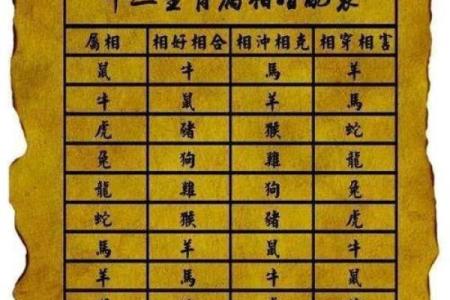 十二生肖屬相婚配表
屬相 相好相合 相沖相克 相穿相害
鼠 牛 馬 羊
牛 鼠 羊 馬
虎 豬 猴 蛇
兔 狗 雞 龍
龍 雞 狗 兔
蛇 猴 豬 虎
馬 羊 鼠 牛
羊 馬 牛 鼠